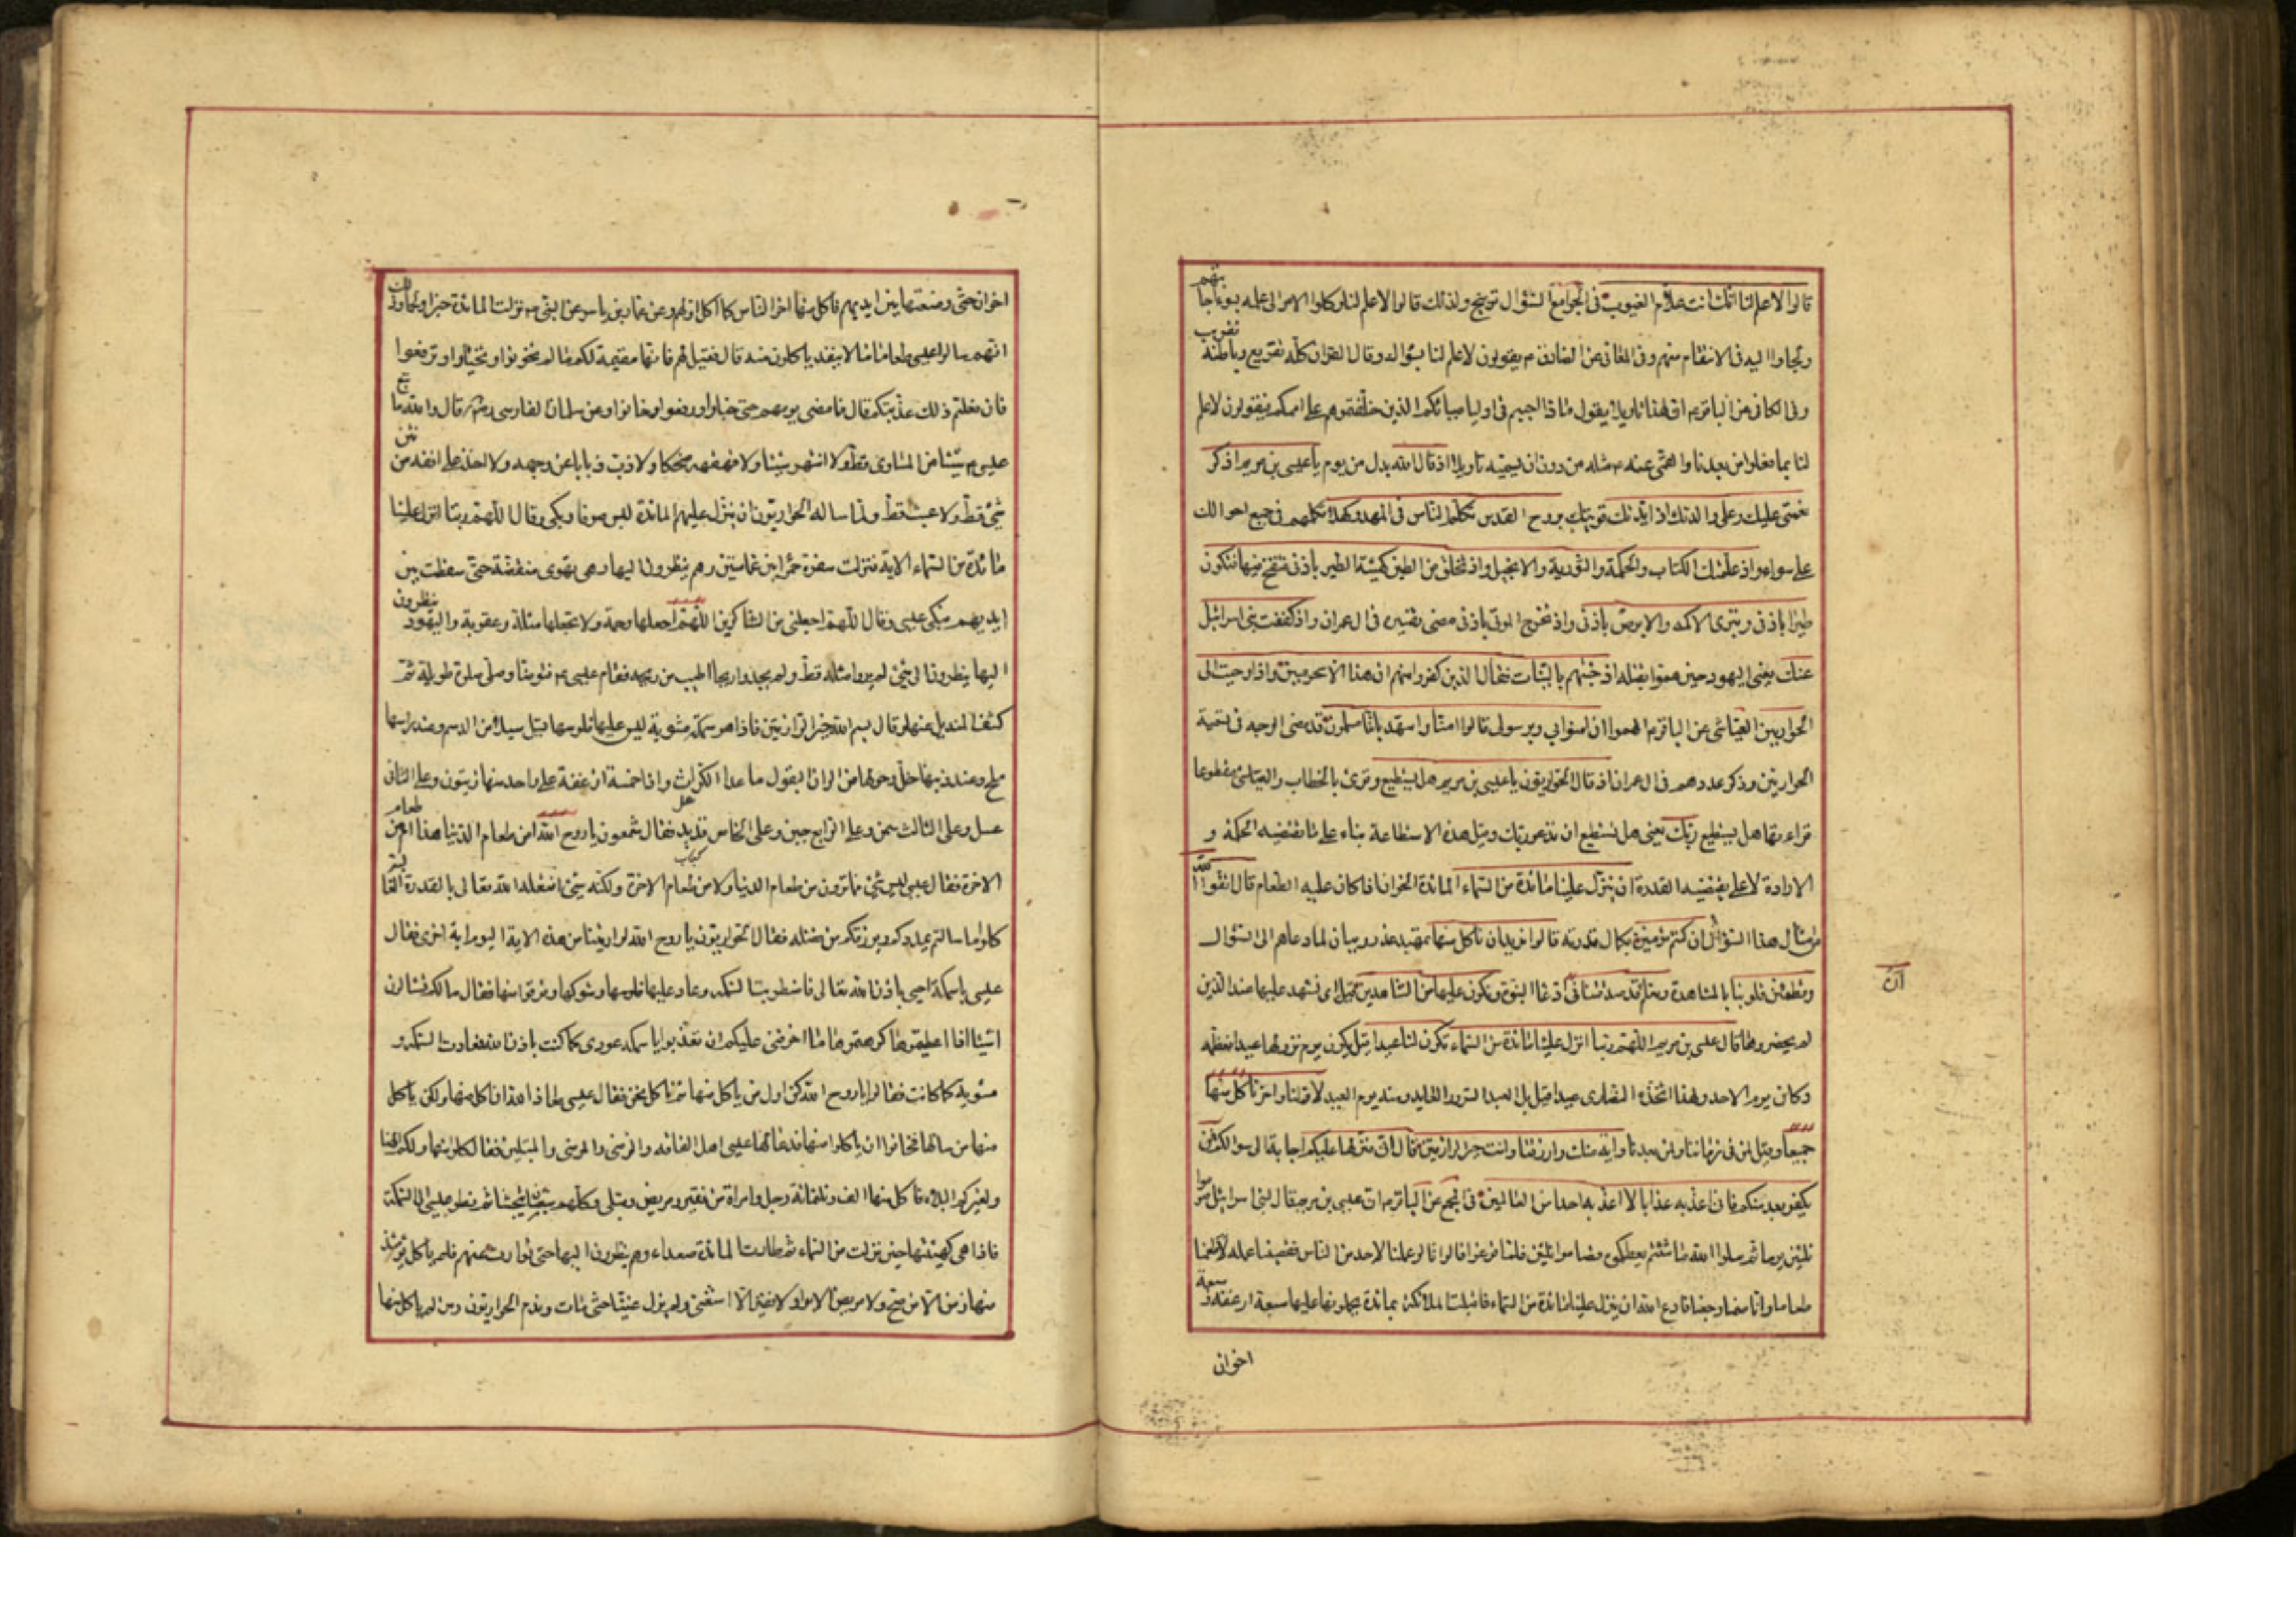 قالوا لا علم لنا انك انت علام الغيوب في الجوامع السؤال توبيخ ولذلك قالوا لا علم لنا وكلوا الامر الى علمه بسوء اجابتهم
ولجاوا اليه في الانتقام منهم وفي المعاني عن الصادق م يقولون لا علم لنا بسوالك وقال القران كله تقريع وباطنه تقريب
وفي الكافي عن الباقر م ان لهذا تاويلا يقول ماذا اجبتم في اوصيائكم الذين خلفتموهم على اممكم فيقولون لا علم
لنا بما فعلوا من بعدنا والقمي عنه م مثله من دون ان يسميه تاويلا اذ قال الله بدل من يوم يا عيسى بن مريم اذكر
نعمتي عليك وعلى والدتك اذ ايدتك قويتك بروح القدس تكلم الناس في المهد وكهلا تكلمهم في جميع احوالك
على سواء واذ علمتك الكتاب والحكمة والتورية والانجيل واذ تخلق من الطين كهيئة الطير باذني فتنفخ فيها فتكون
طيرا باذني وتبرئ الاكمه والابرص باذني واذ تخرج الموتى باذني مضى تفسيره في ال عمران واذ كففت بني اسرائيل
عنك يعني اليهود حين هموا بقتله اذ جئتهم بالبينات فقال الذين كفروا منهم ان هذا الا سحر مبين واذ اوحيت الى
الحواريين العياشي عن الباقر م الهموا ان امنوا بي وبرسولي قالوا امنا واشهد باننا مسلمون قد مضى الوجه في تسمية
الحواريين وذكر عددهم في ال عمران اذ قال الحواريون يا عيسى بن مريم هل يستطيع وقرئ بالخطاب والعياشي مقطوعا
قراءتها هل يستطيع ربك يعني هل تستطيع ان تدعو ربك وقيل هذه الاستطاعة بناء على ما تقتضيه الحكمة و
الارادة لا على ما يقتضيه القدرة ان ينزل علينا مائدة من السماء المائدة الخوان اذا كان عليه الطعام قال اتقوا الله
من امثال هذا السؤال ان كنتم مؤمنين بكمال قدرته قالوا نريد ان ناكل منها تمهيد عذر وبيان لما دعاهم الى السؤال
وتطمئن قلوبنا بالمشاهدة ونعلم ان قد صدقتنا في ادعاء النبوة ونكون عليها من الشاهدين قيل اي نشهد عليها عند الذين
لم يحضروها قال عيسى بن مريم اللهم ربنا انزل علينا مائدة من السماء تكون لنا عيدا قيل يكون يوم نزولها عيدا نعظمه
وكان يوم الاحد ولهذا اتخذه النصارى عيدا وقيل بل العيد السرور العايد ومنه يوم العيد لاولنا واخرنا ناكل منها
جميعا وقيل لمن في زماننا ولمن بعدنا واية منك وارزقنا وانت خير الرازقين قال اني منزلها عليكم اجابة الى سوالكم فمن
يكفر بعد منكم فاني اعذبه عذابا لا اعذبه احدا من العالمين في المجمع عن الباقر م ان عيسى بن مريم قال لبني اسرائيل صوموا
ثلثين يوما ثم سلوا الله ما شئتم يعطكموه فصاموا ثلثين فلما فرغوا قالوا انا لو عملنا لاحد من الناس فقضينا عمله لاطعمنا
طعاما وانا صمنا وجعنا فادع الله ان ينزل علينا مائدة من السماء فاقبلت الملائكة بمائدة يحملونها عليها سبعة ارغفة وسبعة
اخوان
ان
اخوان حتى وضعتها بين ايديهم فاكل منها اخر الناس كما اكل اولهم وعن عمار بن ياسر عن النبي ص نزلت المائدة خبزا ولحما وذلك
انهم سالوا عيسى طعاما لا ينفد ياكلون منه قال فقيل لهم فانها مقيمة لكم ما لم تخونوا وتخبئوا وترفعوا
فان فعلتم ذلك عذبتكم قال فما مضى يومهم حتى خباوا ورفعوا وخانوا وعن سلمان الفارسي رض قال والله ما تبع
عيسى م شيئا من المساوي قط ولا انتهر يتيما ولا قهقه ضحكا ولا ذب ذبابا عن وجهه ولا اخذ على انفه من نتن
شيء قط ولا عبث قط ولما ساله الحواريون ان ينزل عليهم المائدة لبس صوفا وبكى وقال اللهم ربنا انزل علينا
مائدة من السماء الاية فنزلت سفرة حمراء بين غمامتين وهم ينظرون اليها وهي تهوي منقضة حتى سقطت بين
ايديهم فبكى عيسى وقال اللهم اجعلني من الشاكرين اللهم اجعلها رحمة ولا تجعلها مثلة وعقوبة واليهود ينظرون
اليها ينظرون الى شيء لم يروا مثله قط ولم يجدوا ريحا اطيب من ريحه فقام عيسى م فتوضا وصلى صلوة طويلة ثم
كشف المنديل عنها وقال بسم الله خير الرازقين فاذا هو سمكة مشوية ليس عليها فلوسها تسيل سيلا من الدسم وعند راسها
ملح وعند ذنبها خل وحولها من الوان البقول ما عدا الكراث واذا خمسة ارغفة على واحد منها زيتون وعلى الثاني
عسل وعلى الثالث سمن وعلى الرابع جبن وعلى الخامس قديد فقال شمعون يا روح الله امن طعام الدنيا هذا ام من طعام
الاخرة فقال عيسى ليس شيء مما ترون من طعام الدنيا ولا من طعام الاخرة ولكنه شيء افتعله الله تعالى بالقدرة الغالبة
كلوا مما سالتم يمددكم ويرزقكم من فضله فقال الحواريون يا روح الله لو اريتنا من هذه الاية اليوم اية اخرى فقال
عيسى يا سمكة احيي باذن الله تعالى فاضطربت السمكة وعاد عليها فلوسها وشوكها وفزعوا منها فقال ما لكم تسالون
اشياء اذا اعطيتموها كرهتموها ما اخوفني عليكم ان تعذبوا يا سمكة عودي كما كنت باذن الله فعادت السمكة
مشوية كما كانت فقالوا يا روح الله كن اول من ياكل منها ثم ناكل نحن فقال عيسى معاذ الله ان اكل منها ولكن ياكل
منها من سالها فخافوا ان ياكلوا منها فدعا لها عيسى اهل الفاقة والزمنى والمرضى والمبتلين فقال كلوا منها ولكم الهنا
ولغيركم البلاء فاكل منها الف وثلثمائة رجل وامراة من فقير ومريض ومبتلى وكلهم شبعان يتجشا ثم نظر عيسى الى السمكة
فاذا هي كهيئتها حين نزلت من السماء ثم طارت المائدة صعداء وهم ينظرون اليها حتى توارت عنهم فلم ياكل يومئذ
منها زمن الا صح ولا مريض الا برئ ولا فقير الا استغنى ولم يزل غنيا حتى مات وندم الحواريون ومن لم ياكل منها